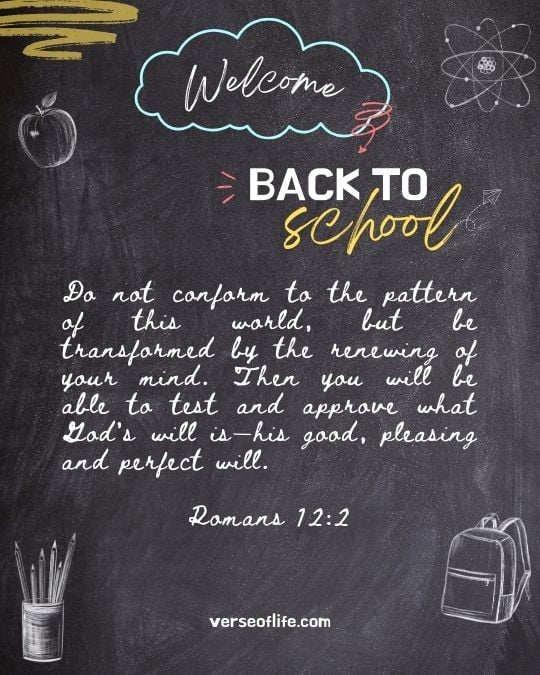 Welcome
BACK TO
school
Do not conform to the pattern
of this world, but be
transformed by the renewing of
your mind. Then you will be
able to test and approve what
God's will is—his good, pleasing
and perfect will.
Romans 12:2
verseoflife.com